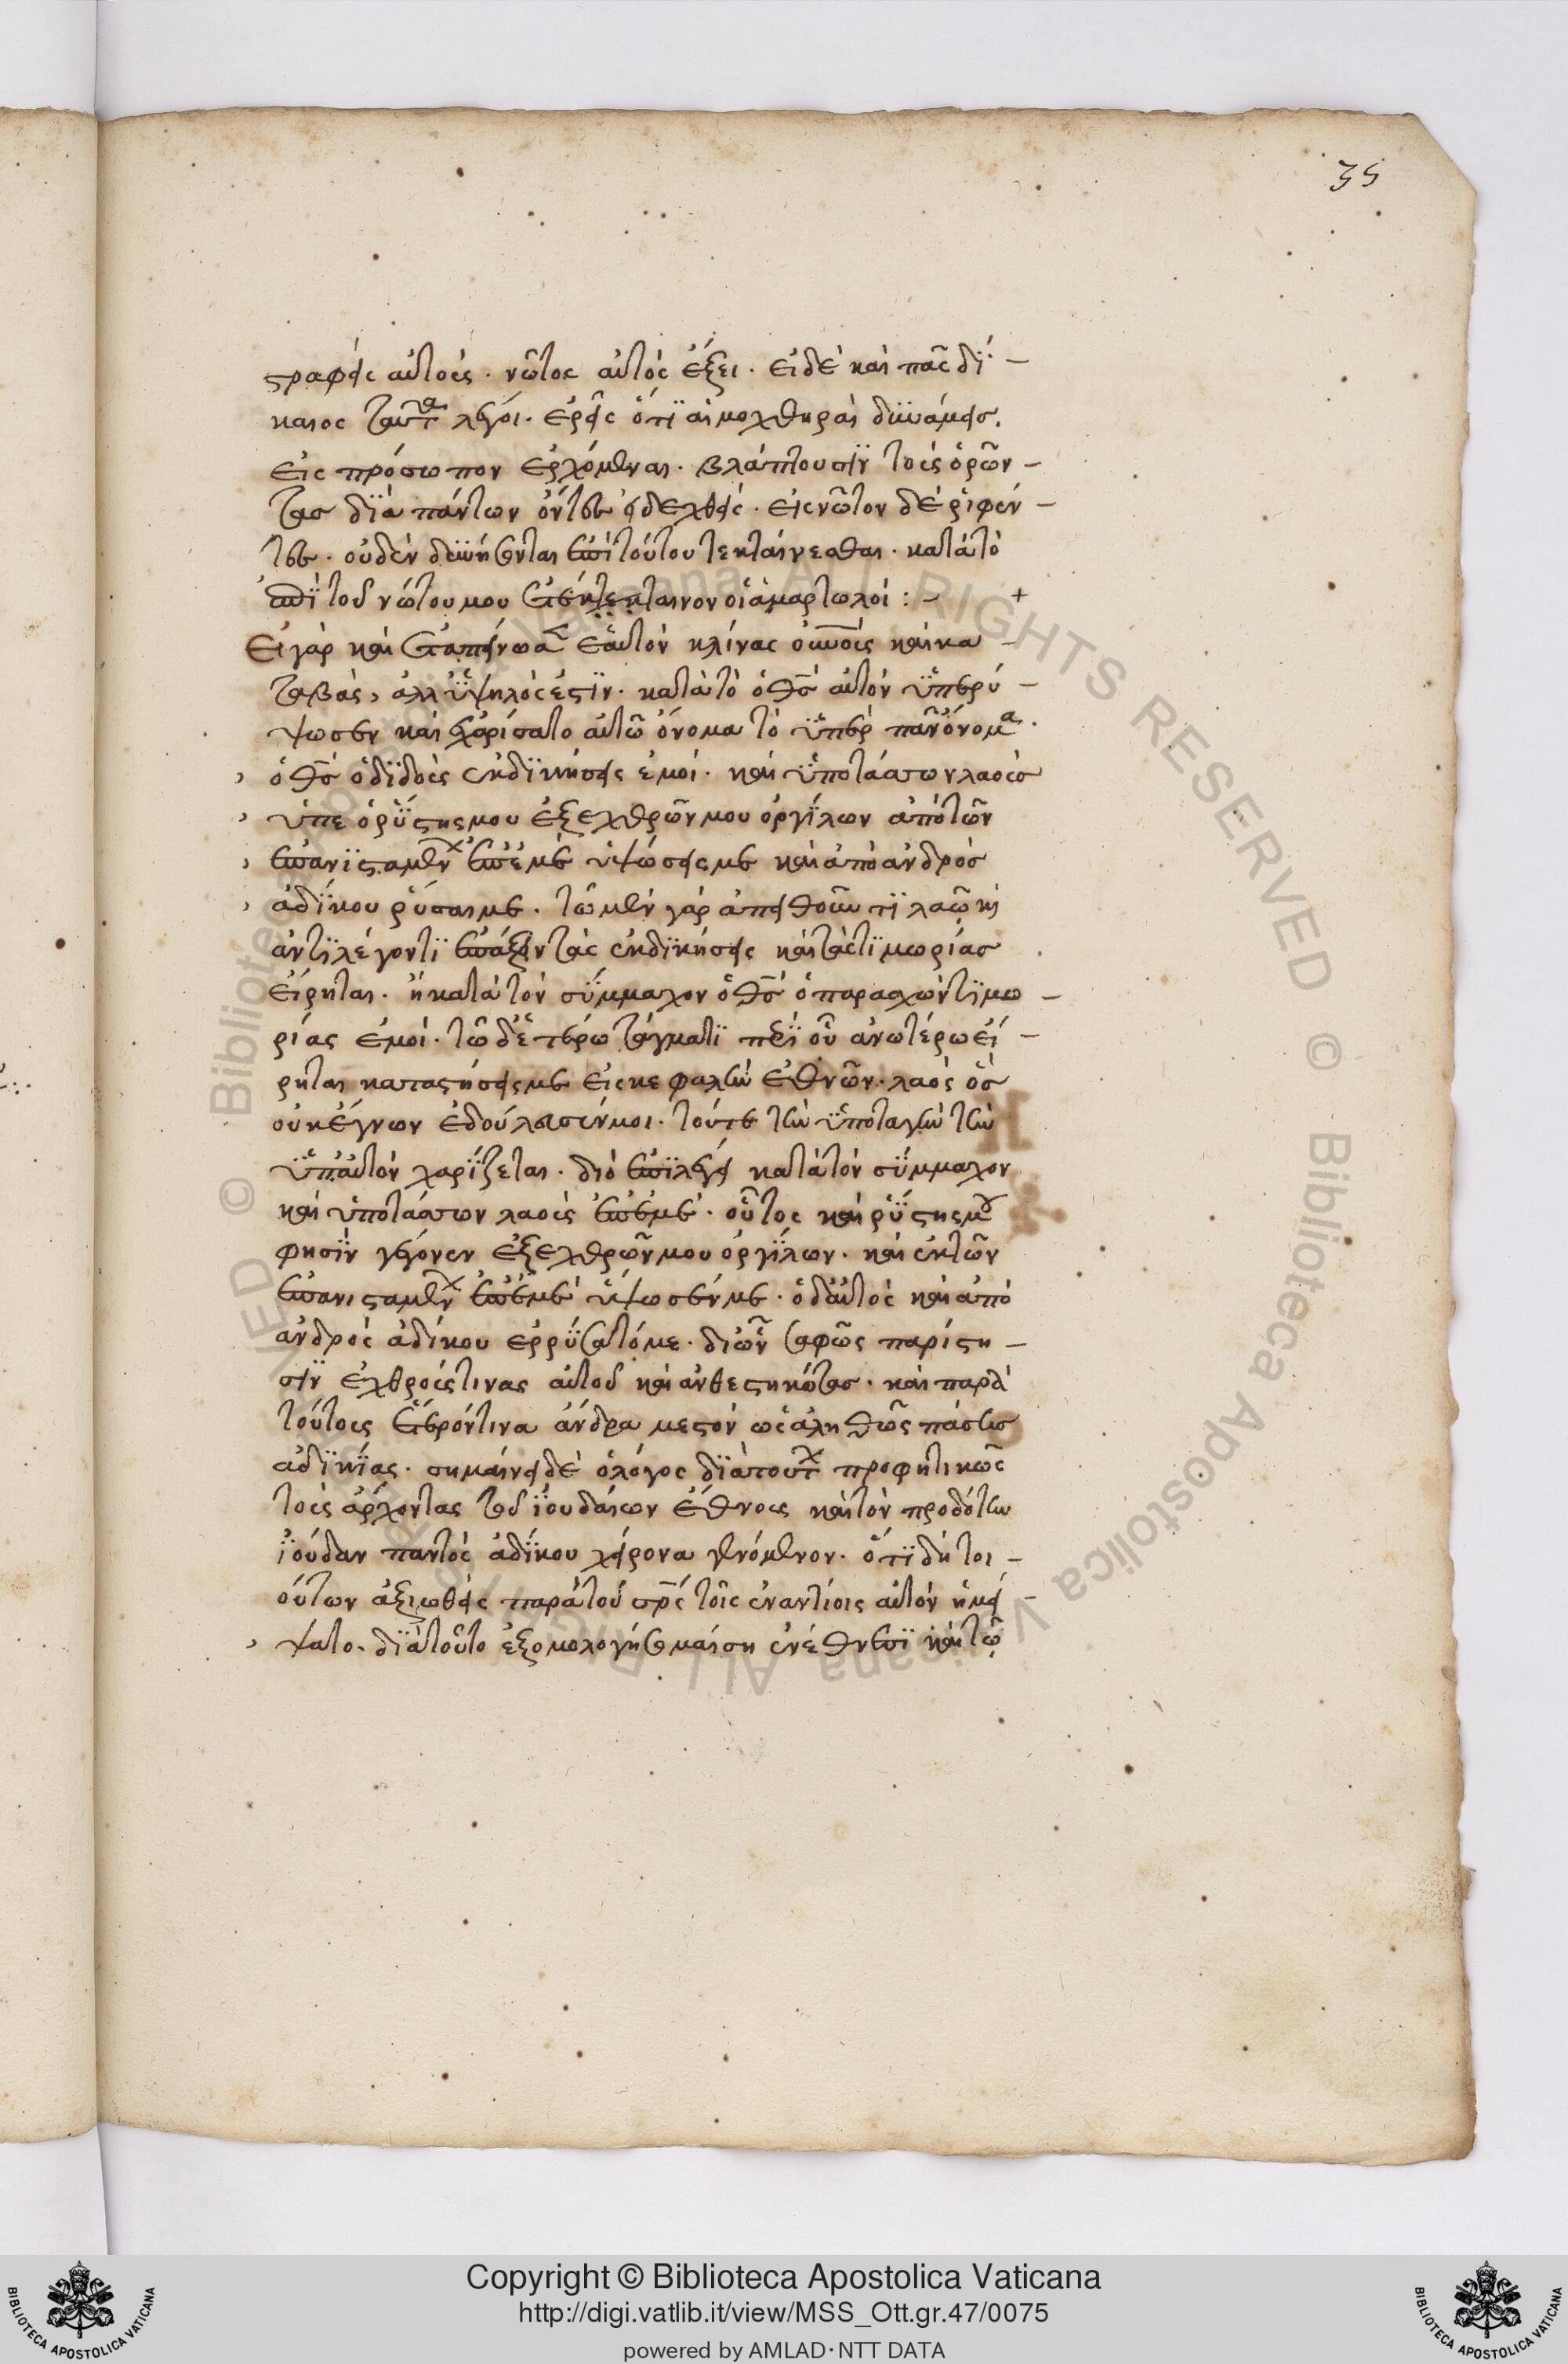 35
στραφεὶς αὐτοὺς · νῶτος αὐτὸς ἕξει · εἰ δὲ καὶ πᾶς δί-
καιος ταῦτα λέγοι · ἐρεῖς ὅτι αἱ μοχθηραὶ δυνάμεις
εἰς πρόσωπον ἐρχόμεναι · βλάπτουσιν τοὺς ὁρῶν-
τας διὰ πάντων · εἰς νῶτον δὲ ῥιφέν-
τες · οὐδὲν δεινὴ ἐπὶ τούτου τεκταίνεσθαι · κατὰ τὸ
ἐπὶ τοῦ νώτου μου ἐτέκταινον οἱ ἁμαρτωλοί : - +
Εἰ γὰρ καὶ ἐταπείνωσεν ἑαυτὸν κλίνας οὐνοὺς καὶ κα-
ταβάς, ἀλλ' ὑψηλός ἐστιν · κατὰ τὸ ὁ θς αὐτὸν ὑπερύ-
ψωσεν καὶ ἐχαρίσατο αὐτῶ ὄνομα τὸ ὑπὲρ πᾶν ὄνομα ·
ὁ θς ὁ διδοὺς ἐκδικήσεις ἐμοί · καὶ ὑποτάσσων λαοὺς
ὑπ' ἐμὲ ὁ ῥύστης μου ἐξ ἐχθρῶν μου ὀργίλων ἀπὸ τῶν
ἐπανισταμένων ἐπ' ἐμὲ ὑψώσεις με καὶ ἀπὸ ἀνδρὸς
ἀδίκου ῥύσαι με · τῶ μὲν γὰρ ἀπειθοῦντι λαῶ καὶ
ἀντιλέγοντι ἐπάξειν τὰς ἐκδικήσεις καὶ τὰς τιμωρίας
εἴρηται · ἢ κατὰ τὸν σύμμαχον ὁ θς ὁ παρασχὼν τιμω-
ρίας ἐμοί · τῶ δ' ἑτέρω τάγματι περὶ οὗ ἀνωτέρω εἴ-
ρηται καταστήσεις με εἰς κεφαλὴν ἐθνῶν · λαὸς ὃς
οὐκ ἔγνων ἐδούλευσέν μοι · τούτω τὴν ὑποταγὴν τὴν
ὑπ' αὐτὸν χαρίζεται · διὸ ἐπιλέγει κατὰ τὸν σύμμαχον
καὶ ὑποτάσσων λαοὺς ὑπ' ἐμέ · οὗτος καὶ ῥύστης μου
φησὶν γέγονεν ἐξ ἐχθρῶν μου ὀργίλων · καὶ ἐκ τῶν
ἐπανισταμένων ἐπ' ἐμὲ ὕψωσέν με · ὁ δ' αὐτὸς καὶ ἀπὸ
ἀνδρὸς ἀδίκου ἐρρύσατό με · δι' ὧν σαφῶς παρίστη-
σιν ἐχθρούς τινας αὐτοῦ καὶ ἀνθεστηκότας · καὶ παρὰ
τούτοις ἕτερόν τινα ἄνδρα μεστὸν ὡς ἀληθῶς πάσης
ἀδικίας · σημαίνει δὲ ὁ λόγος διὰ τούτων προφητικῶς
τοὺς ἄρχοντας τοῦ ἰουδαίων ἔθνους καὶ τὸν προδότην
ἰούδαν παντὸς ἀδίκου χείρονα γενόμενον · ὅτι δὴ τοι-
ούτων ἀξιωθεὶς παρὰ τοῦ πρς τοὺς ἐναντίους αὐτὸν ἠμεί-
ψατο · διὰ τοῦτο ἐξομολογήσομαί σοι ἐν ἔθνεσι καὶ τῶ
Copyright © Biblioteca Apostolica Vaticana
http://digi.vatlib.it/view/MSS_Ott.gr.47/0075
powered by AMLAD·NTT DATA